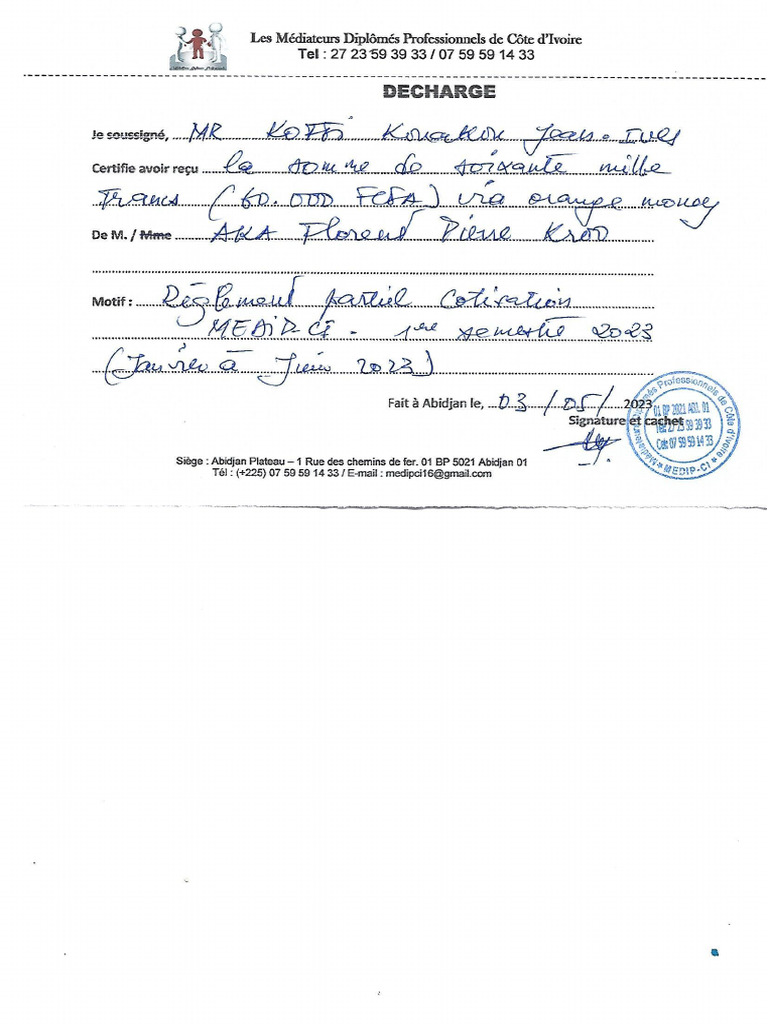 Les Médiateurs Diplômés Professionnels de Côte d'Ivoire
Tel : 27 23 59 39 33 / 07 59 59 14 33
DECHARGE
Je soussigné, MR KOFFI Kouakou Jean-Yves
Certifie avoir reçu la somme de soixante mille
Francs (60.000 FCFA) via orange money
De M. / Mme AKA Florend Pierre
Motif : Règlement partiel Cotisation
MEDIP-CI - 1er semestre 2023
(Janvier à Juin 2023)
Fait à Abidjan le, 03/05/2023
Signature et cachet
Médiateurs Diplômés Professionnels de Côte d'Ivoire
Tel: 27 23 59 39 33
Cel: 07 59 59 14 33
MEDIP-CI
Siège : Abidjan Plateau – 1 Rue des chemins de fer. 01 BP 5021 Abidjan 01
Tél : (+225) 07 59 59 14 33 / E-mail : medipci16@gmail.com